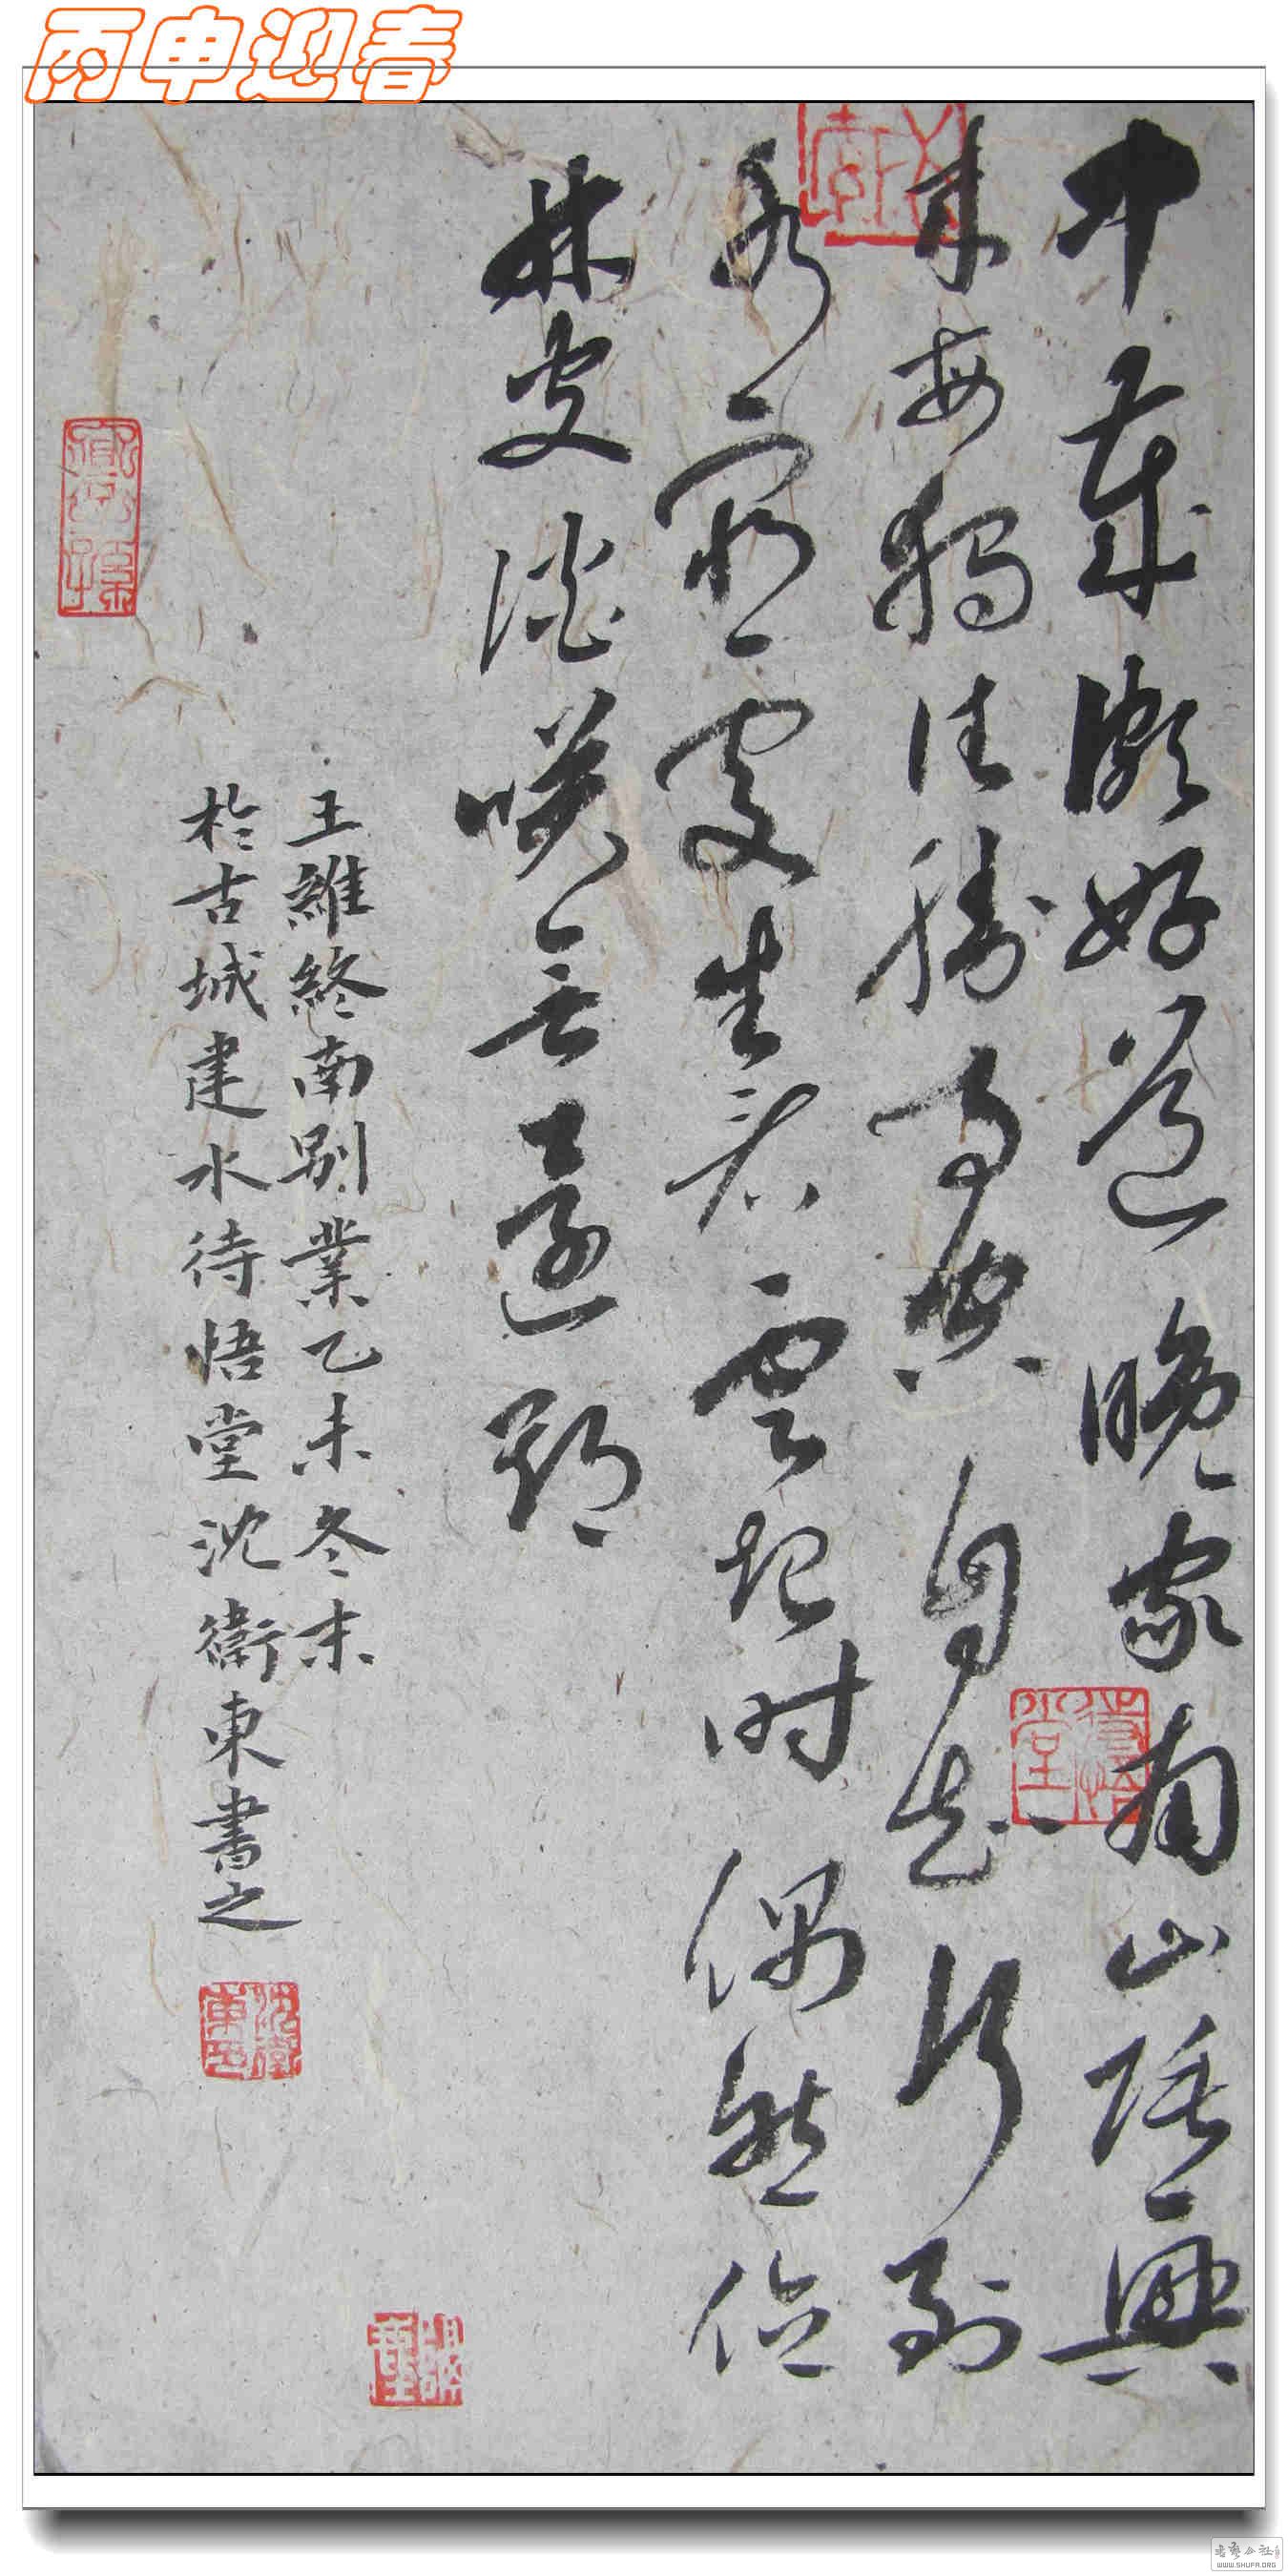 丙申迎春
中歲頗好道晚家南山陲興
来每獨往勝事空自知行到
水窮處坐看雲起时偶然值
林叟談咲無還期
王維終南別業乙未冬末
於古城建水待悟堂沈衛東書之
待悟堂
沈衛東印
WWW.SHUFA.ORG